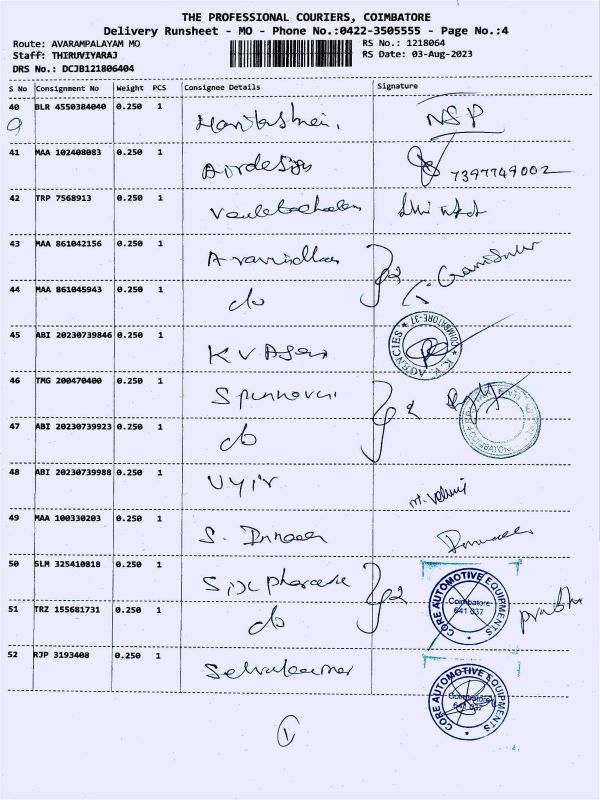 THE PROFESSIONAL COURIERS, COIMBATORE
Delivery Runsheet - MO - Phone No.:0422-3505555 - Page No.:4
Route: AVARAMPALAYAM MO RS No.: 1218064
Staff: THIRUVIYARAJ RS Date: 03-Aug-2023
DRS No.: DCJB121806404
S No Consignment No Weight PCS Consignee Details Signature
40 BLR 4550384040 0.250 1 NSP
9
41 MAA 102408083 0.250 1 Airdesign 7397749002
42 TRP 7568913 0.250 1
43 MAA 861042156 0.250 1 Aravindhan
44 MAA 861045943 0.250 1 do
45 ABI 20230739846 0.250 1 K V Agen
K.V. AGENCIES * COIMBATORE-37 *
46 TMG 200470400 0.250 1
47 ABI 20230739923 0.250 1 do
COIMBATORE
48 ABI 20230739988 0.250 1 Uyir
49 MAA 100330203 0.250 1
50 SLM 325410818 0.250 1
CORE AUTOMOTIVE EQUIPMENTS
Coimbatore
641 037
51 TRZ 155681731 0.250 1 do
52 RJP 3193408 0.250 1 Selvakumar
CORE AUTOMOTIVE EQUIPMENTS
Coimbatore
641 037
1